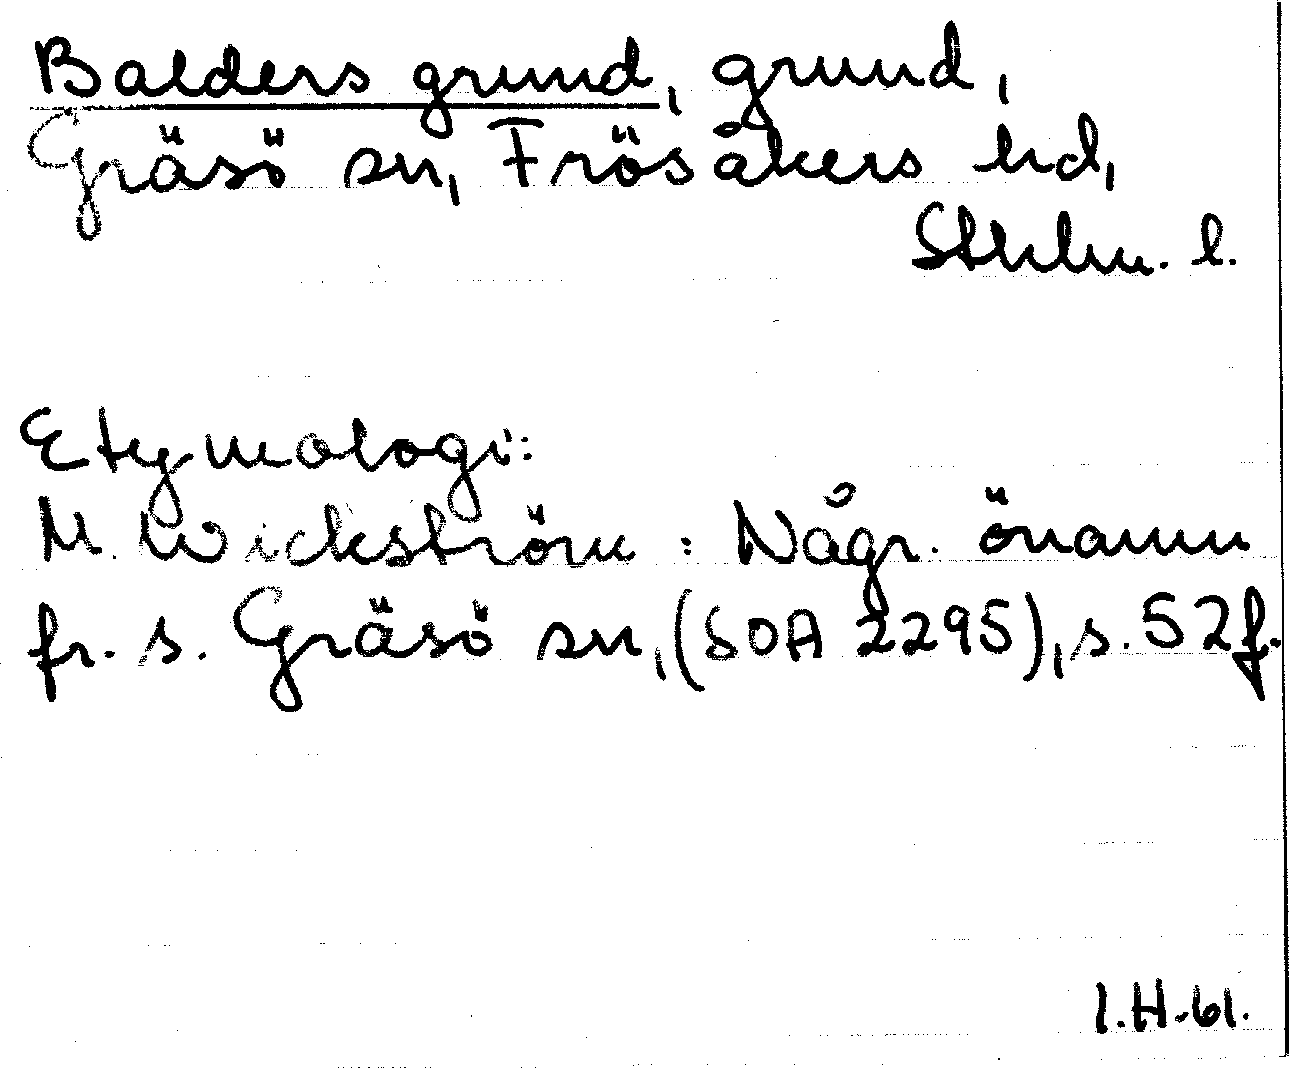 Balders grund, grund,
Gräsö sn, Frösåkers hd,
Sthlm. l.
Etymologi:
M. Wickström : Någr. önamn
fr. s. Gräsö sn, (SOA 2295), s. 52f.
I.H.-61.